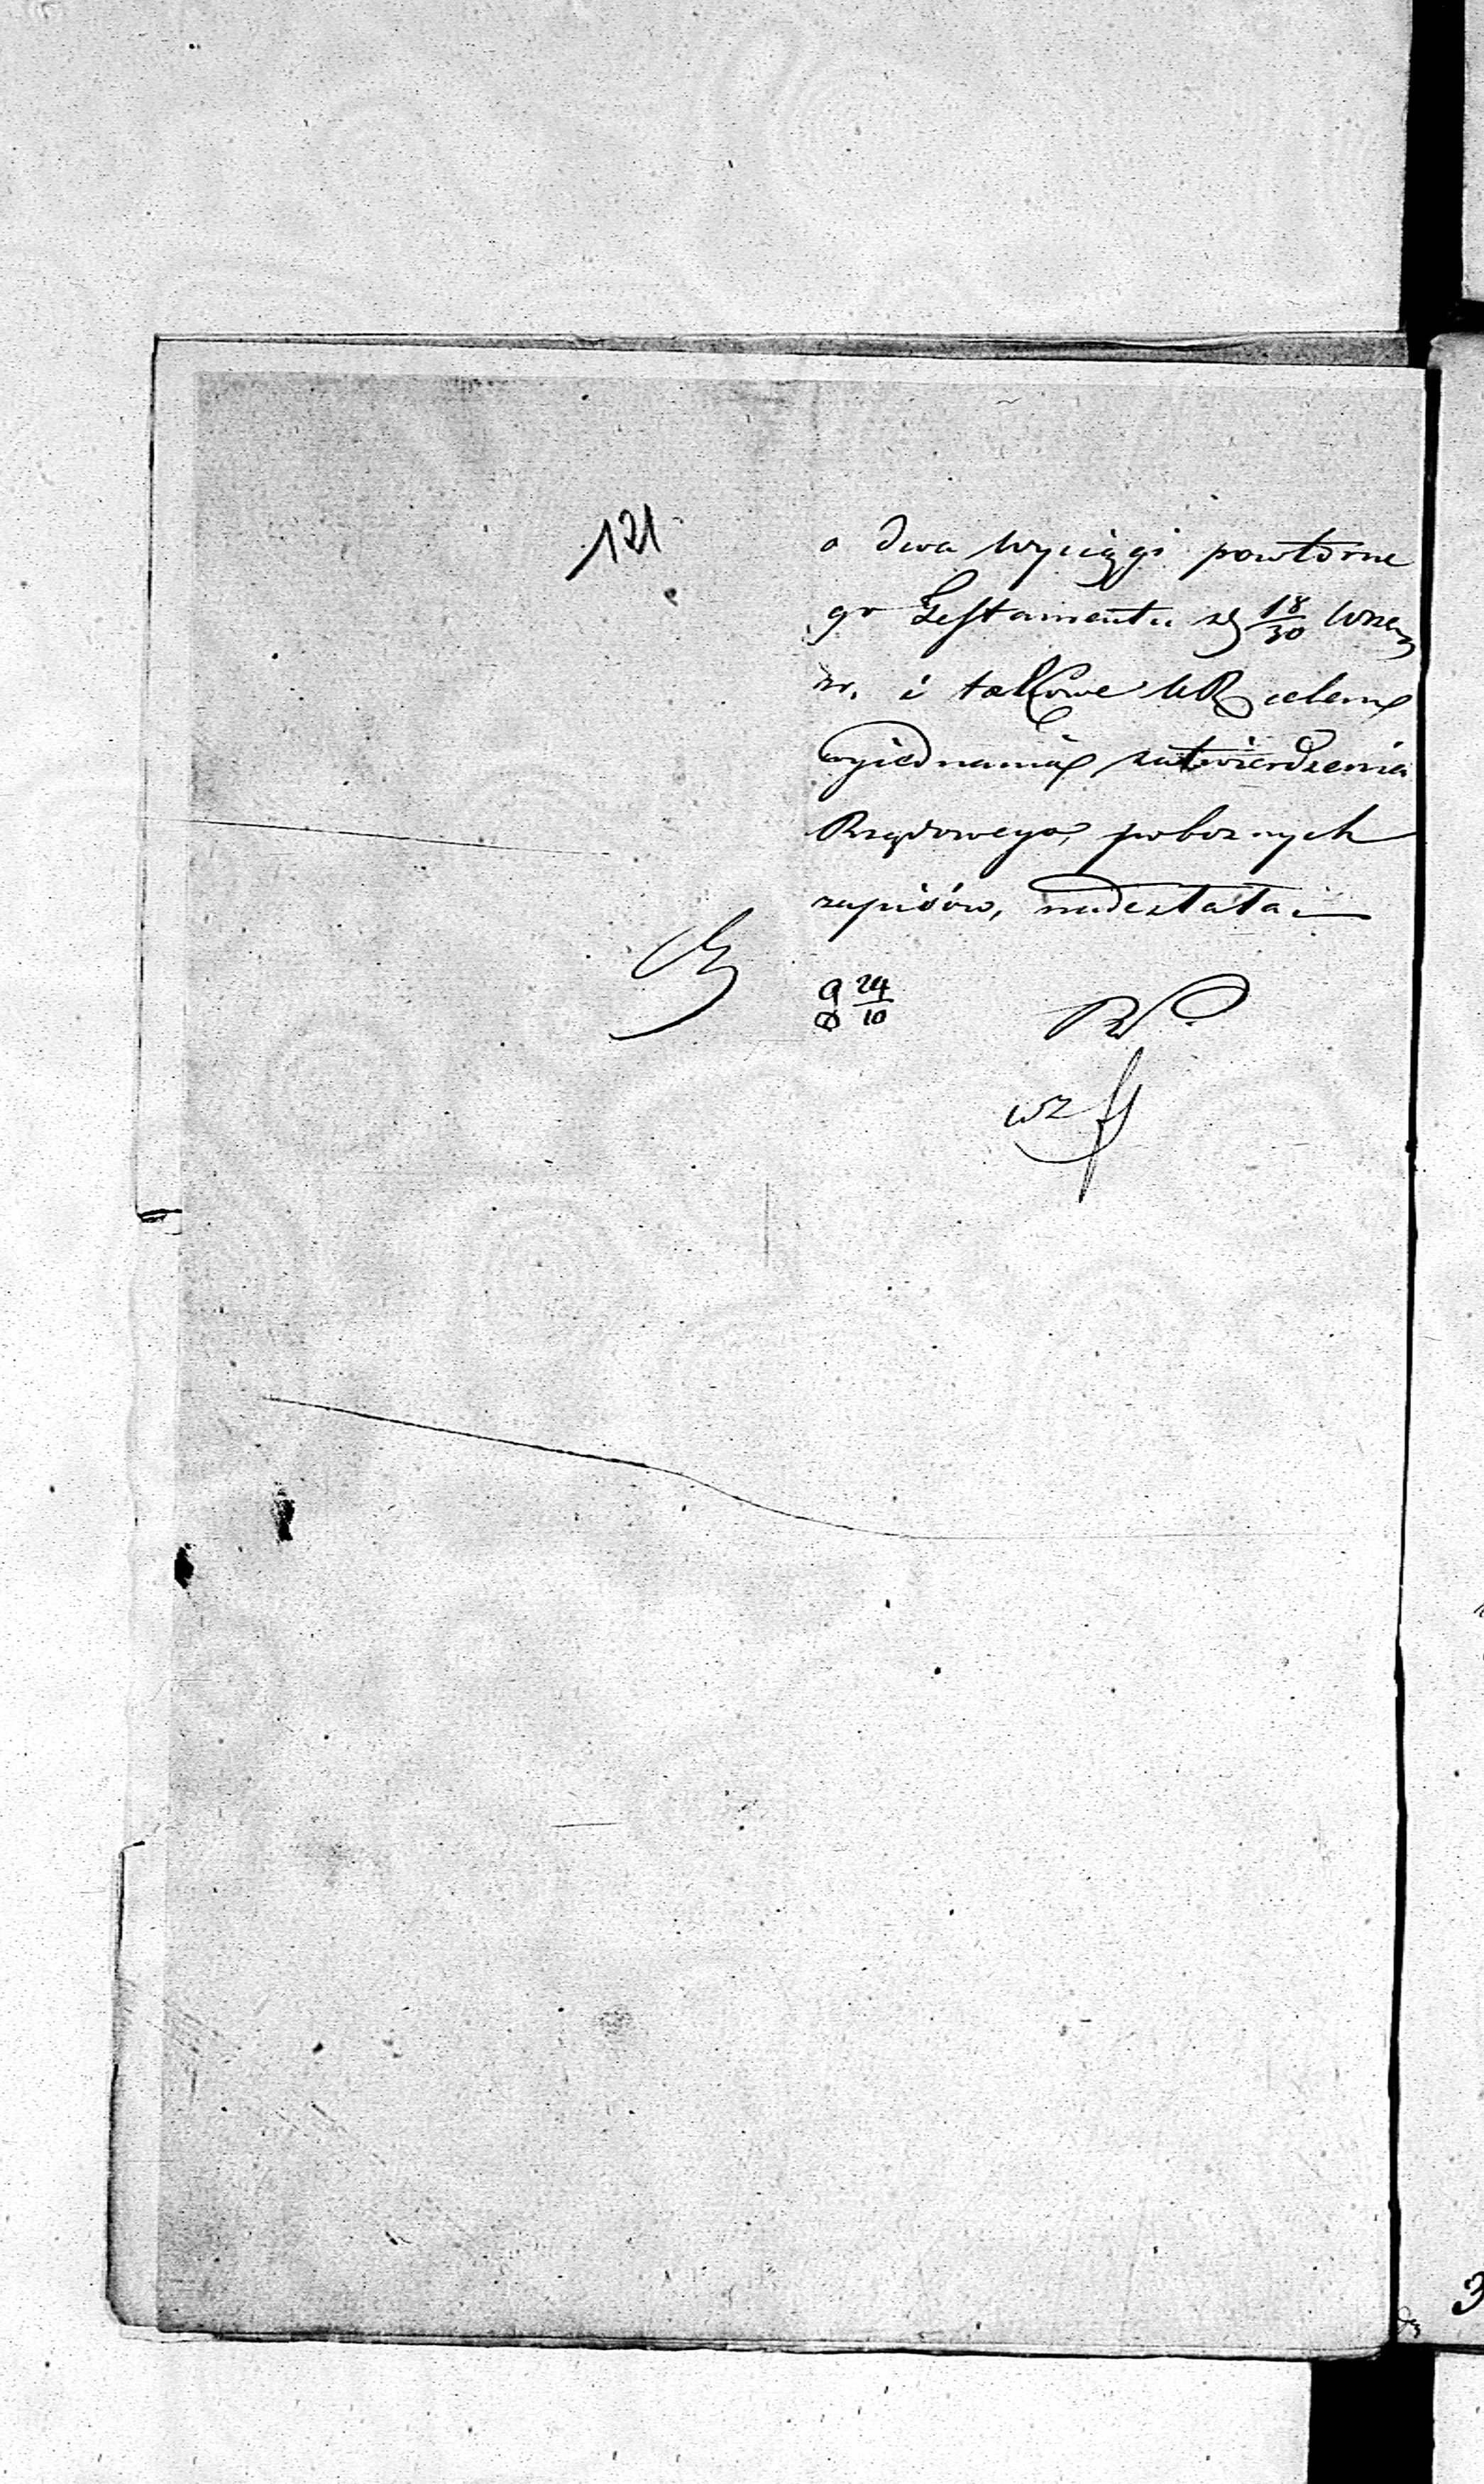 121
o dwa wyciągi powtórne
go Testamentu z 18/30 Wrze
br. i takowe celem
wyiednania zatwierdzenia
Rządowego, pobożnych
zapisów, nadesłała
24/10
wz